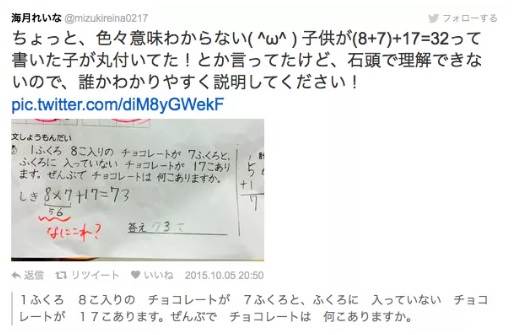 海月れいな @mizukireina0217
フォローする
ちょっと、色々意味わからない( ^ω^ ) 子供が(8+7)+17=32って
書いた子が丸付いてた！とか言ってたけど、石頭で理解できな
いので、誰かわかりやすく説明してください！
pic.twitter.com/diM8yGWekF
文しょうもんだい
1ふくろ 8こ入りの チョコレートが 7ふくろと、
ふくろに 入っていない チョコレートが 17こあり
ます。ぜんぶで チョコレートは 何こありますか。
しき 8×7+17=73
56
なにこれ?
答え 73こ
5
+1
7
返信 リツイート いいね 2015.10.05 20:50
１ふくろ ８こ入りの チョコレートが ７ふくろと、ふくろに 入っていない チョコ
レートが １７こあります。ぜんぶで チョコレートは 何こありますか。